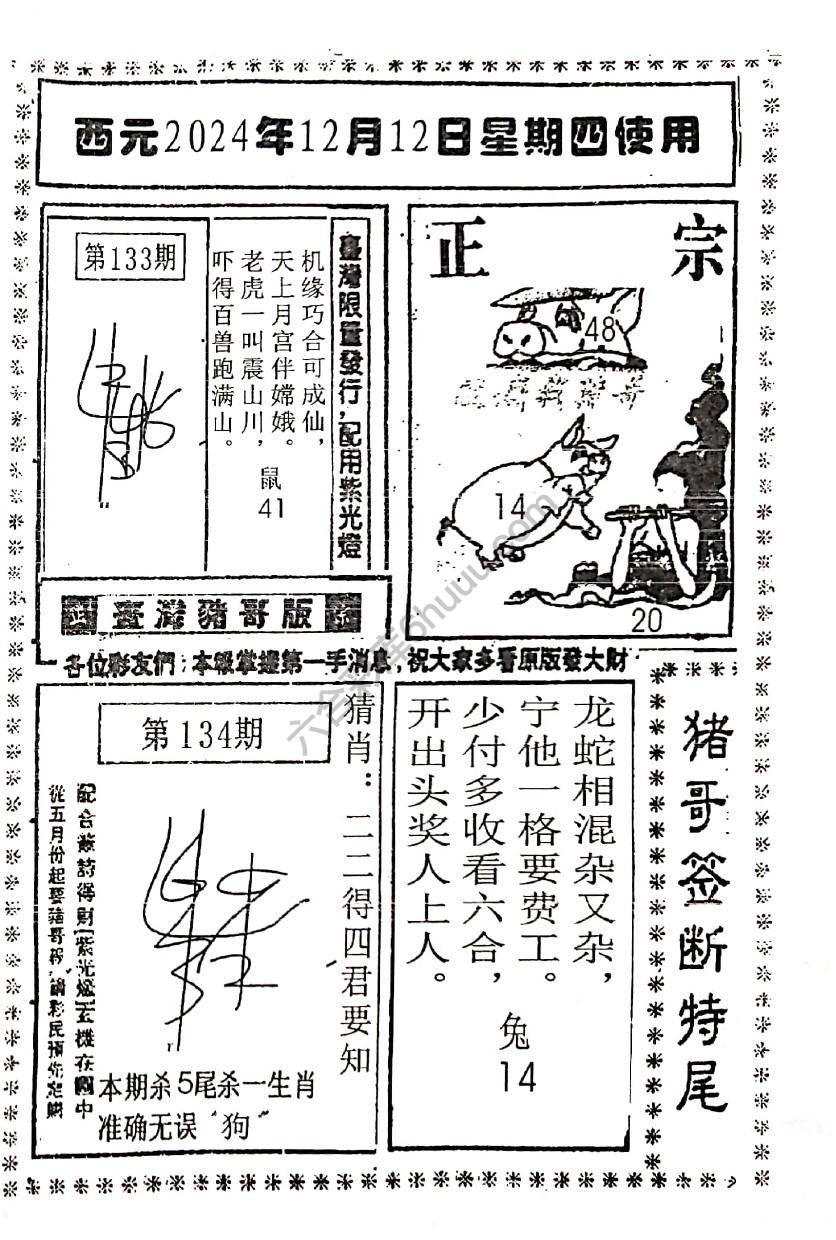 西元2024年12月12日星期四使用
第133期
机缘巧合可成仙，
天上月宫伴嫦娥。
老虎一叫震山川，
吓得百兽跑满山。
鼠
41
臺灣限量發行，配用紫光燈
正宗
48
14
20
臺灣豬哥版
各位彩友們：本報掌握第一手消息，祝大家多看原版發大財
第134期
猜肖：二二得四君要知
配合簽詩得財
本期杀5尾杀一生肖
准确无误“狗”
龙蛇相混杂又杂，
宁他一格要费工。
少付多收看六合，
开出头奖人上人。
兔
14
猪哥签断特尾